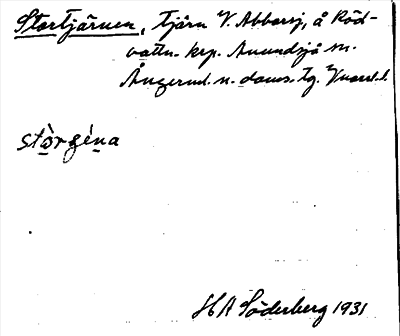 Stortjärnen, tjärn V. Abborsj, å Röd-
vattn. krp. Anundsjö sn.
Ångerml. n. doms. tg. Vnorrl. l.
stòrgèna
H A Söderberg 1931